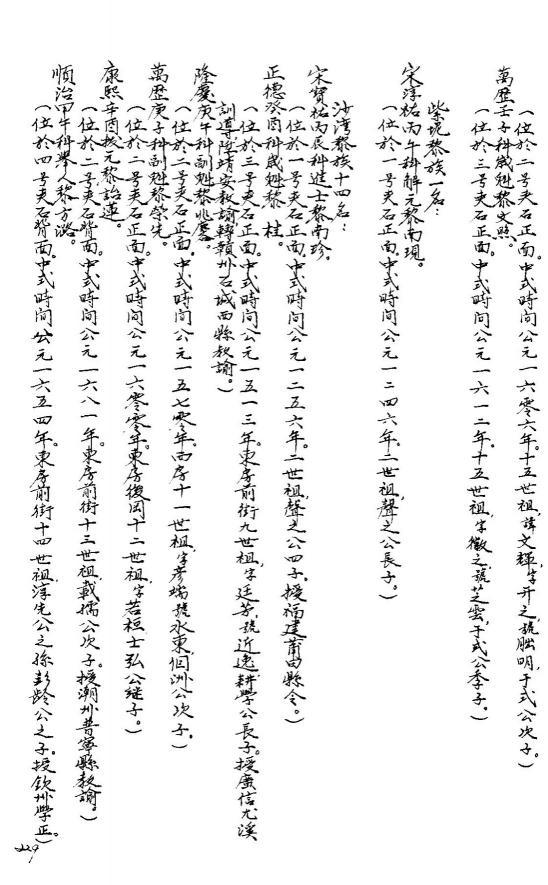 (位於二号夹石正面。中式時间公元一六零六年。十五世祖,諱文輝,字升之,號朏明,于式公次子。)
萬歷壬子科歲魁黎文照。
(位於三号夹石正面。中式時间公元一六一二年。十五世祖,字徽之,號芝雲,于式公季子。)
紫坭黎族一名:
宋淳祐丙午科解元黎南現。
(位於一号夹石正面。中式時间公元一二四六年。二世祖,聲之公長子。)
沙灣黎族十四名:
宋寶祐丙辰科進士黎南珍。
(位於一号夹石正面。中式時间公元一二五六年。二世祖,聲之公四子。授福建莆田縣令。)
正德癸酉科歲魁黎 桂。
(位於三号夹石正面。中式時间公元一五一三年。東房前街九世祖,字廷芳,號近逸,耕學公長子。授廣信尤溪
訓導,陞靖安教諭,轉贛州石城西縣教諭。)
隆慶庚午科副魁黎兆鏖。
(位於二号夹石正面。中式時间公元一五七零年。西房十一世祖,字彦端,號水東,佪洲公次子。)
萬歷庚子科副魁黎榮先。
(位於二号夹石正面。中式時间公元一六零零年。東房後岡十二世祖,字若桓,士弘公继子。)
康熙辛酉援元黎詒連。
(位於二号夹石背面。中式時间公元一六八一年。東房前街十三世祖,載孺公次子。授潮州普寧縣教諭。)
順治甲午科舉人黎方潞。
(位於四号夹石背面。中式時间公元一六五四年。東房前街十四世祖,淳先公之孫,彭齡公之子。授钦州學正。)
229